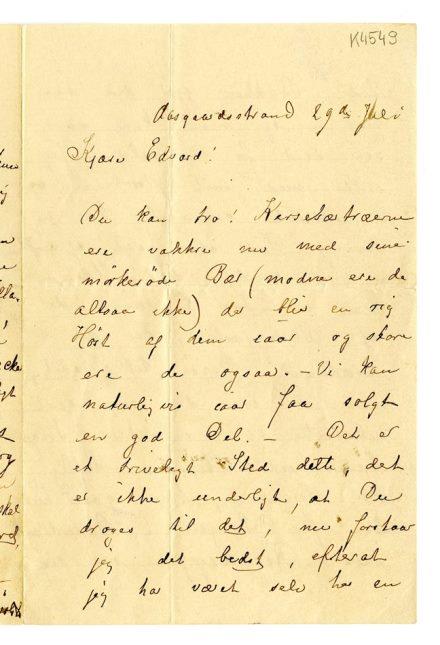 K4549
Aasgaardsstrand 29de Juli
Kjære Edvard!
Du kan tro! Kersebætræerne
ere vakkre nu med sine
mørkerøde Bær (modne ere de
altsaa ikke) der blir en rig
Høst af dem iaar og store
ere de ogsaa. – Vi kan
naturligvis iaar faa solgt
en god Del. – Det er
et triveligt Sted dette, det
er ikke underligt, at Du
drages til det, nu forstaar
jeg det bedst, efterat
jeg har været selv her en